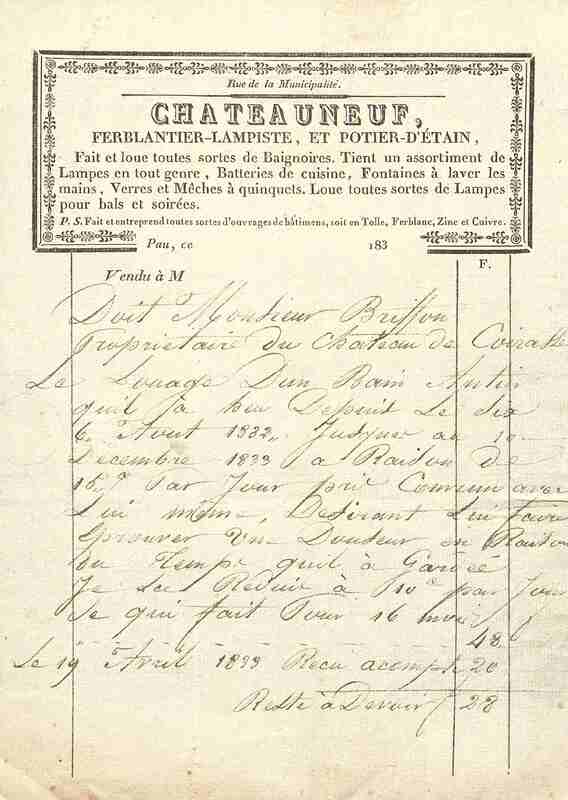 Rue de la Municipalité.
CHATEAUNEUF,
FERBLANTIER-LAMPISTE, ET POTIER-D'ÉTAIN,
Fait et loue toutes sortes de Baignoires. Tient un assortiment de
Lampes en tout genre, Batteries de cuisine, Fontaines à laver les
mains, Verres et Mêches à quinquets. Loue toutes sortes de Lampes
pour bals et soirées.
P. S. Fait et entreprend toutes sortes d'ouvrages de bâtimens, soit en Tolle, Ferblanc, Zinc et Cuivre.
Pau, ce 183
Vendu à M F.
Doit Monsieur Briffon
Proprietaire du Chateau de
Le Louage Dun Bain
quil la Depuis Le Six
6. Aout 1832 Jusques au 10
Decembre 1833 a Raison de
15 Par Jour prix Convenu avec
Lui même, Desirant Lui faire
Eprouver Une Douceur en Raison
Du Temps quil à Gardée
Je Le Reduis à 10 par Jour
Se qui fait Pour 16 mois
48
Le 19 Avril 1833 Recu acompte 20
Reste à Devoir 28